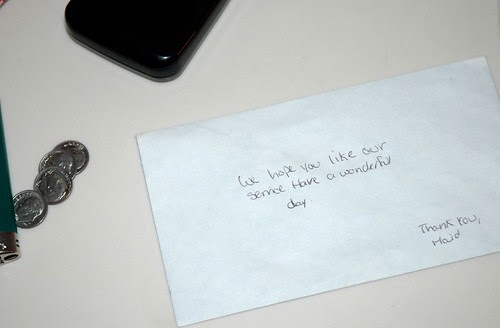 We hope you like our
service Have a wonderful
day.
Thank You,
Maid